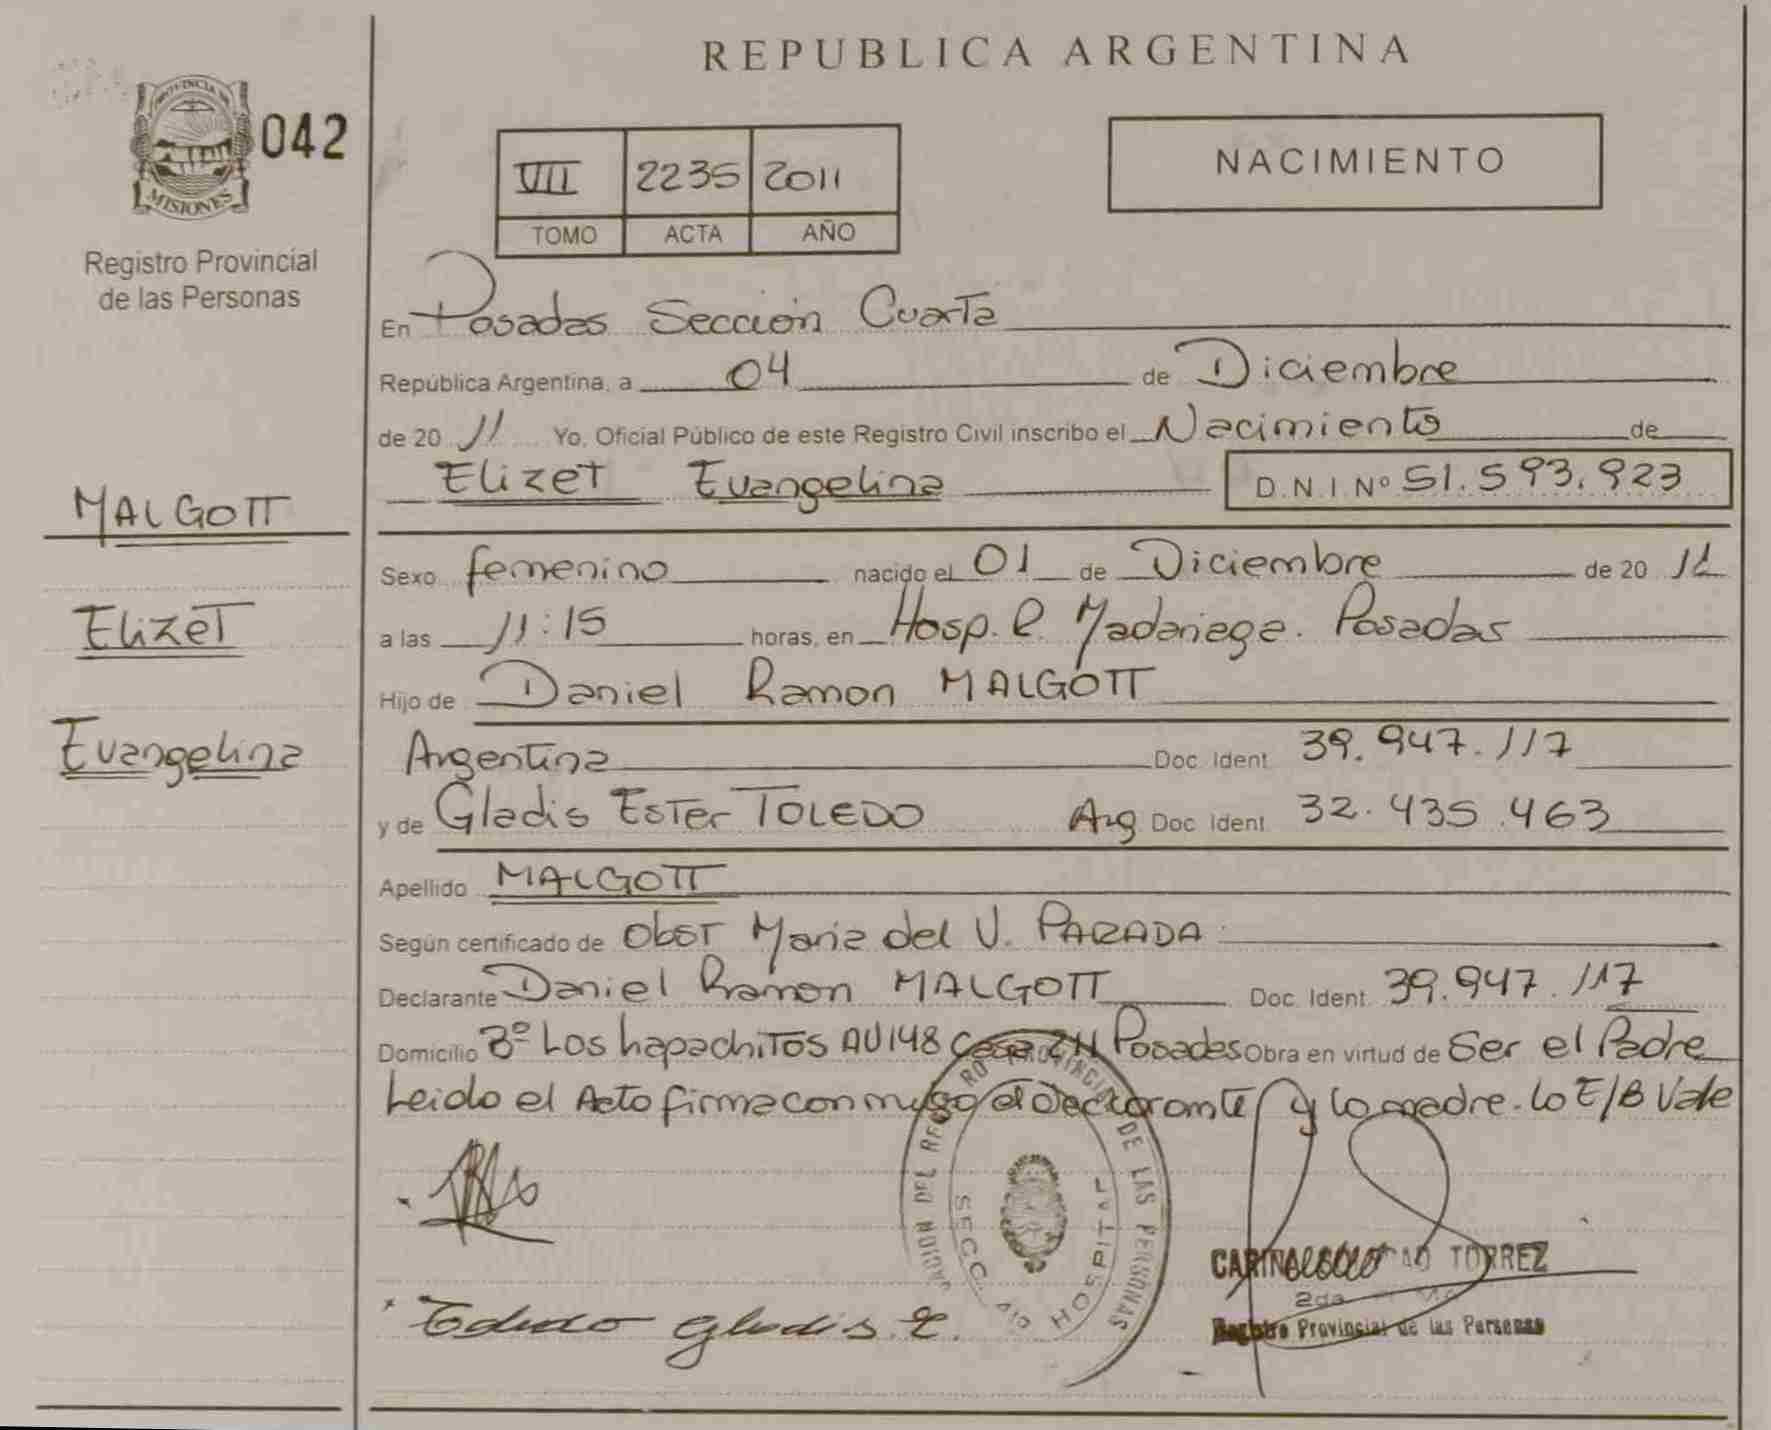 REPUBLICA ARGENTINA
PROVINCIA DE
MISIONES
042
Registro Provincial
de las Personas
VII 2235 2011
TOMO ACTA AÑO
NACIMIENTO
En Posadas Sección Cuarta
República Argentina, a 04 de Diciembre
de 20 11 Yo, Oficial Público de este Registro Civil inscribo el Nacimiento de
Elizet Evangelina D.N.I Nº 51.593.923
MALGOTT
Elizet
Evangelina
Sexo femenino nacido el 01 de Diciembre de 20 11
a las 11:15 horas, en Hosp. R. Madariaga. Posadas
Hijo de Daniel Ramon MALGOTT
Argentina Doc. Ident. 39.947.117
y de Gladis Ester TOLEDO Arg Doc. Ident. 32.435.463
Apellido MALGOTT
Según certificado de Obst Maria del V. PARADA
Declarante Daniel Ramon MALGOTT Doc. Ident. 39.947.117
Domicilio Bº Los Lapachitos AV 148 Casa 211 Posadas Obra en virtud de Ser el Padre
Leido el Acto firma con migo el declarante y la madre. lo E/B Vale
PROVINCIAL DE LAS PERSONAS
SECC. 4ta HOSPITAL
Toledo Gladis E.
TORREZ
2da
Registro Provincial de las Personas